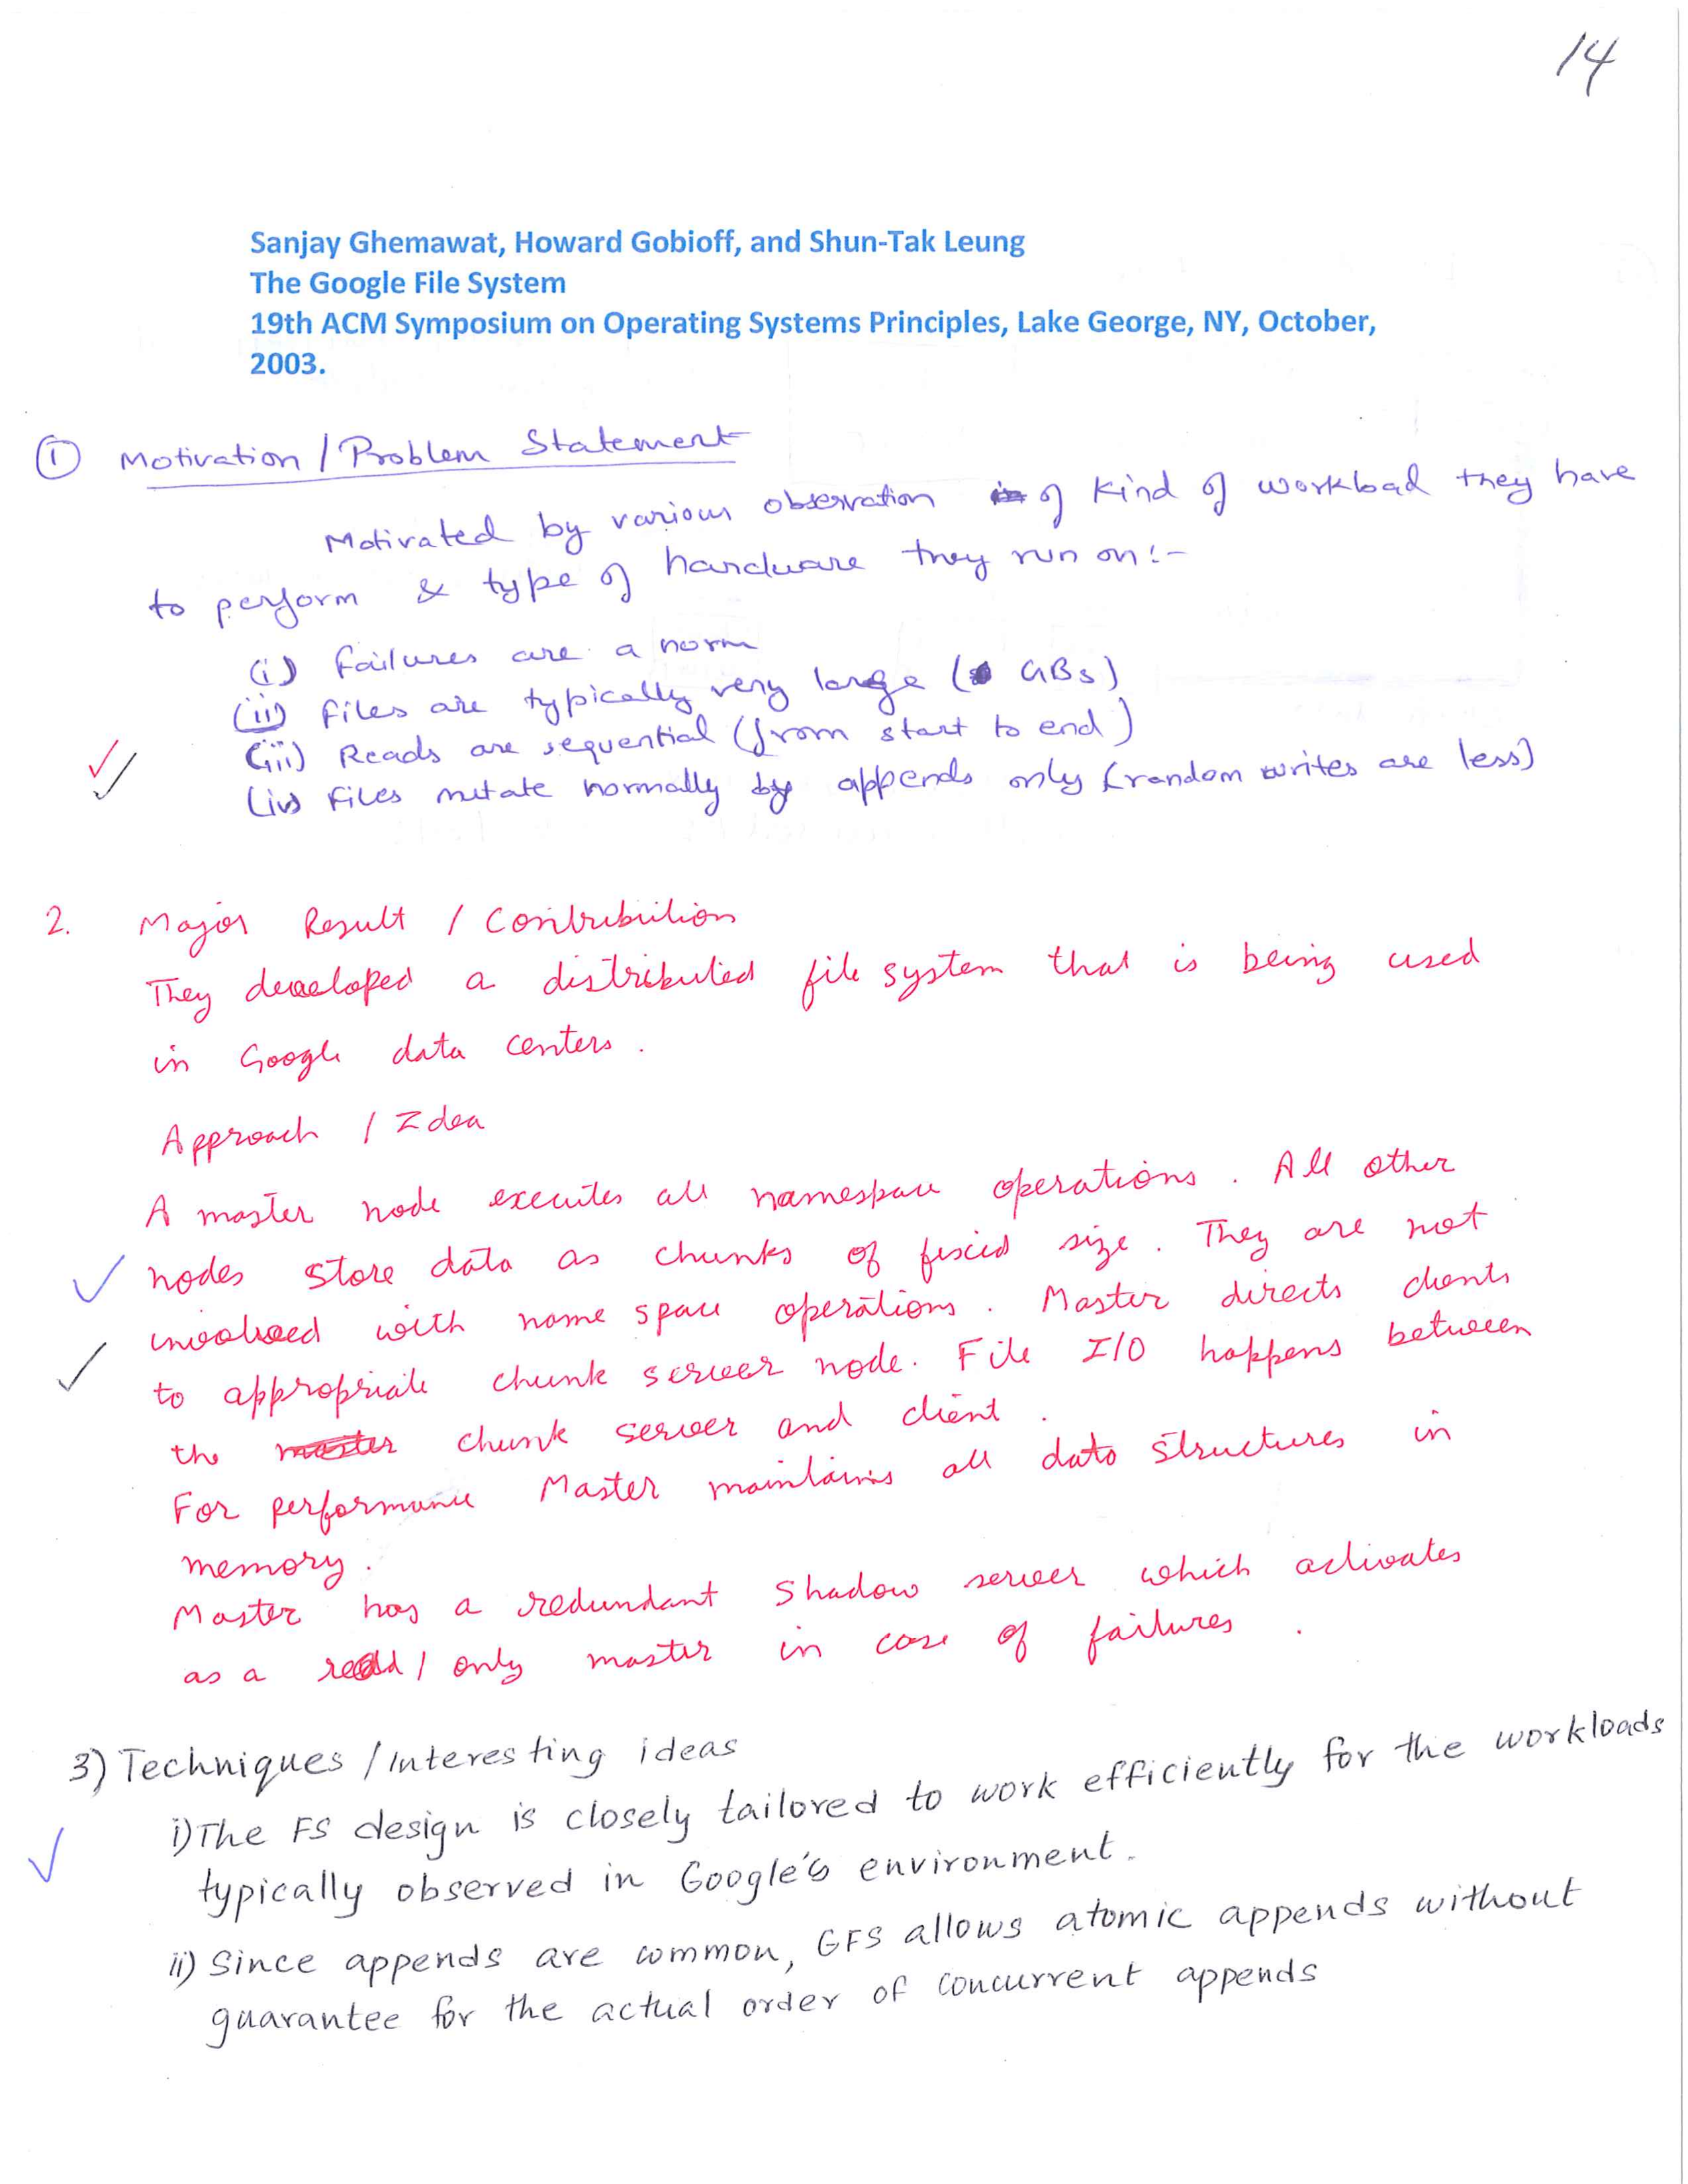 14
Sanjay Ghemawat, Howard Gobioff, and Shun-Tak Leung
The Google File System
19th ACM Symposium on Operating Systems Principles, Lake George, NY, October,
2003.
① Motivation / Problem Statement
Motivated by various observation of kind of workload they have
to perform & type of hardware they run on :-
(i) Failures are a norm
(ii) Files are typically very large ( GBs)
(iii) Reads are sequential (from start to end)
(iv) Files mutate normally by appends only (random writes are less)
2. Major Result / Contribution
They developed a distributed file system that is being used
in Google data centers.
Approach / Idea
A master node executes all namespace operations. All other
nodes store data as chunks of fixed size. They are not
involved with name space operations. Master directs clients
to appropriate chunk server node. File I/O happens between
the chunk server and client.
For performance Master maintains all data structures in
memory.
Master has a redundant shadow server which activates
as a read / only master in case of failures.
3) Techniques / Interesting ideas
i) The FS design is closely tailored to work efficiently for the workloads
typically observed in Google's environment.
ii) Since appends are common, GFS allows atomic appends without
guarantee for the actual order of concurrent appends